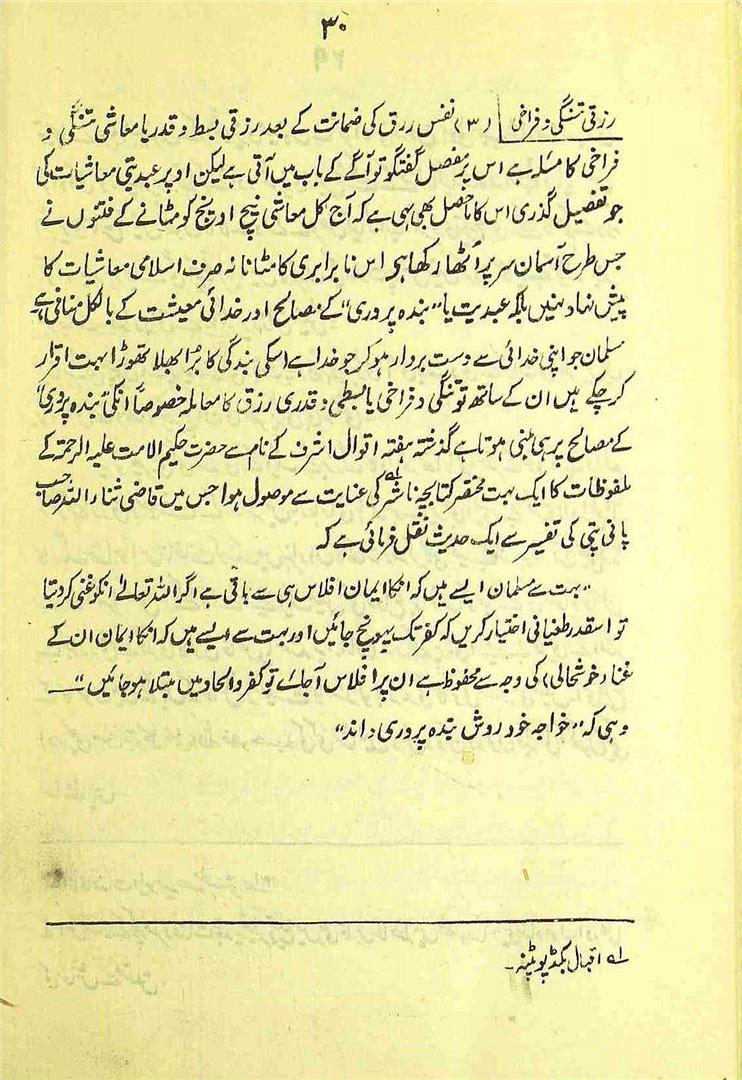 ۳۰
رزقی تنگی و فراخی (۳) نفس رزق کی ضمانت کے بعد رزقی بسط و قدر یا معاشی تنگی و
فراخی کا مسئلہ ہے اس پر مفصل گفتگو تو آگے کے باب میں آتی ہے لیکن اوپر عبدیتی معاشیات کی
جو تفصیل گذری اس کا ماحصل بھی یہی ہے کہ آج کل معاشی نیچ اونچ کو مٹانے کے فتنوں نے
جس طرح آسمان سر پر اُٹھا رکھا ہے اس نابرابری کا مٹانا نہ صرف اسلامی معاشیات کا
پیش نہاد نہیں بلکہ عبدیت یا "بندہ پروری" کے مصالح اور خدائی معیشت کے بالکل منافی ہے
مسلمان جو اپنی خدائی سے دست بردار ہو کر جو خدا ہے اسکی بندگی کا بُرا بھلا تھوڑا بہت اقرار
کر چکے ہیں ان کے ساتھ تو تنگی و فراخی یا بسطی و قدری رزق کا معاملہ خصوصاً انکی "بندہ پروری"
کے مصالح پر ہی مبنی ہوتا ہے گذشتہ ہفتہ اقوال اشرف کے نام سے حضرت حکیم الامت علیہ الرحمۃ کے
ملفوظات کا ایک بہت مختصر کتابچہ ناشر لہ کی عنایت سے موصول ہوا جس میں قاضی ثناء اللہ صاحب
پانی پتی کی تفسیر سے ایک حدیث نقل فرمائی ہے کہ
"بہت سے مسلمان ایسے ہیں کہ انکا ایمان افلاس ہی سے باقی ہے اگر اللہ تعالےٰ انکو غنی کر دیتا
تو اسقدر طغیانی اختیار کریں کہ کفر تک پہونچ جائیں اور بہت سے ایسے ہیں کہ انکا ایمان ان کے
غناء (خوشحالی) کی وجہ سے محفوظ ہے ان پر افلاس آجائے تو کفر و الحاد میں مبتلا ہو جائیں"
وہی کہ "خواجہ خود روش بندہ پروری داند"
لہ اقبال بکڈپو پٹنہ۔